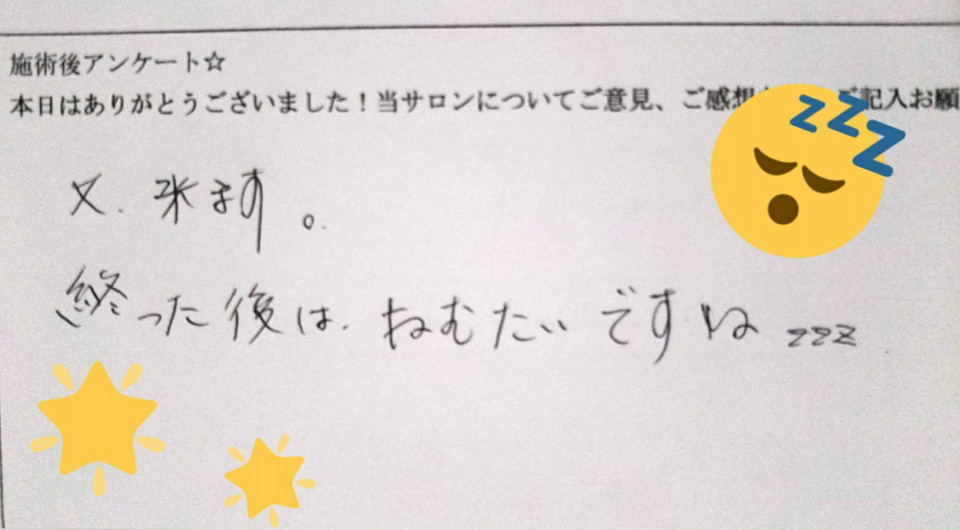 施術後アンケート☆
本日はありがとうございました！当サロンについてご意見、ご感想 ご記入お願
又、来ます。
終った後は、ねむたいですね zzz
zzz